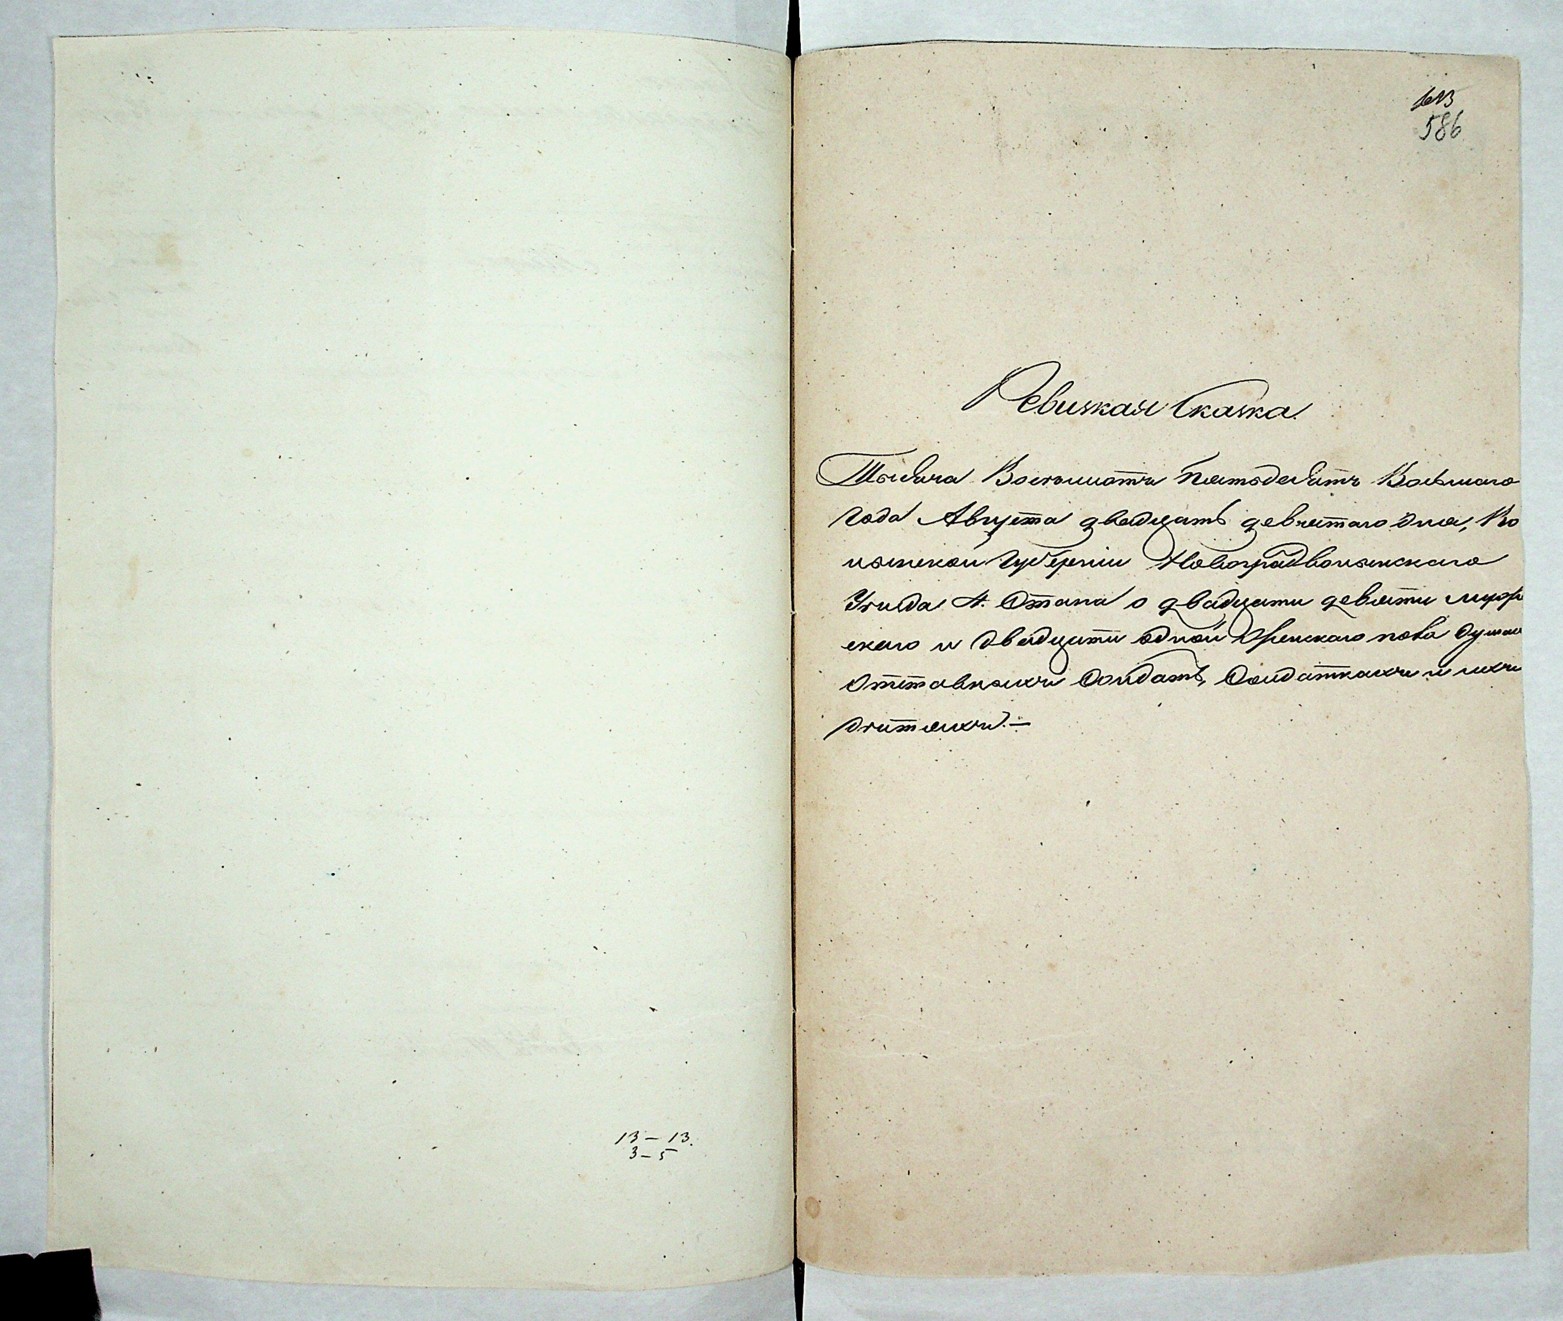 13 — 13.
3 — 5
613
586
Ревизкая Сказка.
Тысяча Восемьсотъ Пятьдесятъ Восьмаго
года Августа двадцать девятаго дня, Во
лынской Губерніи Новоградволынскаго
Уѣзда 4. Стана о двадцати девяти муж
скаго и двадцати одной женскаго пола душах
Отставныхъ Солдатъ, Солдаткахъ и ихъ
дѣтяхъ. —